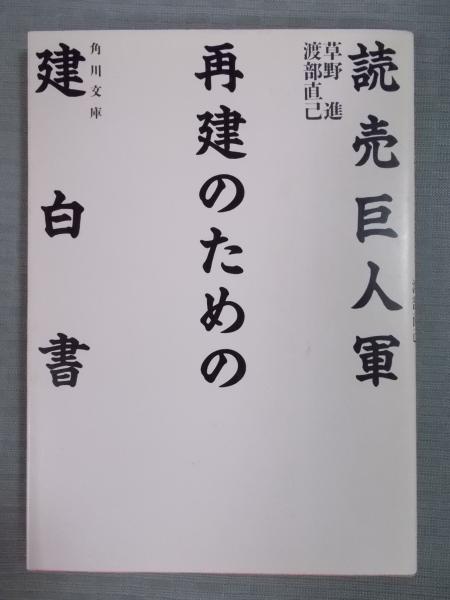 読売巨人軍
草野進
渡部直己
再建のための
建白書
角川文庫